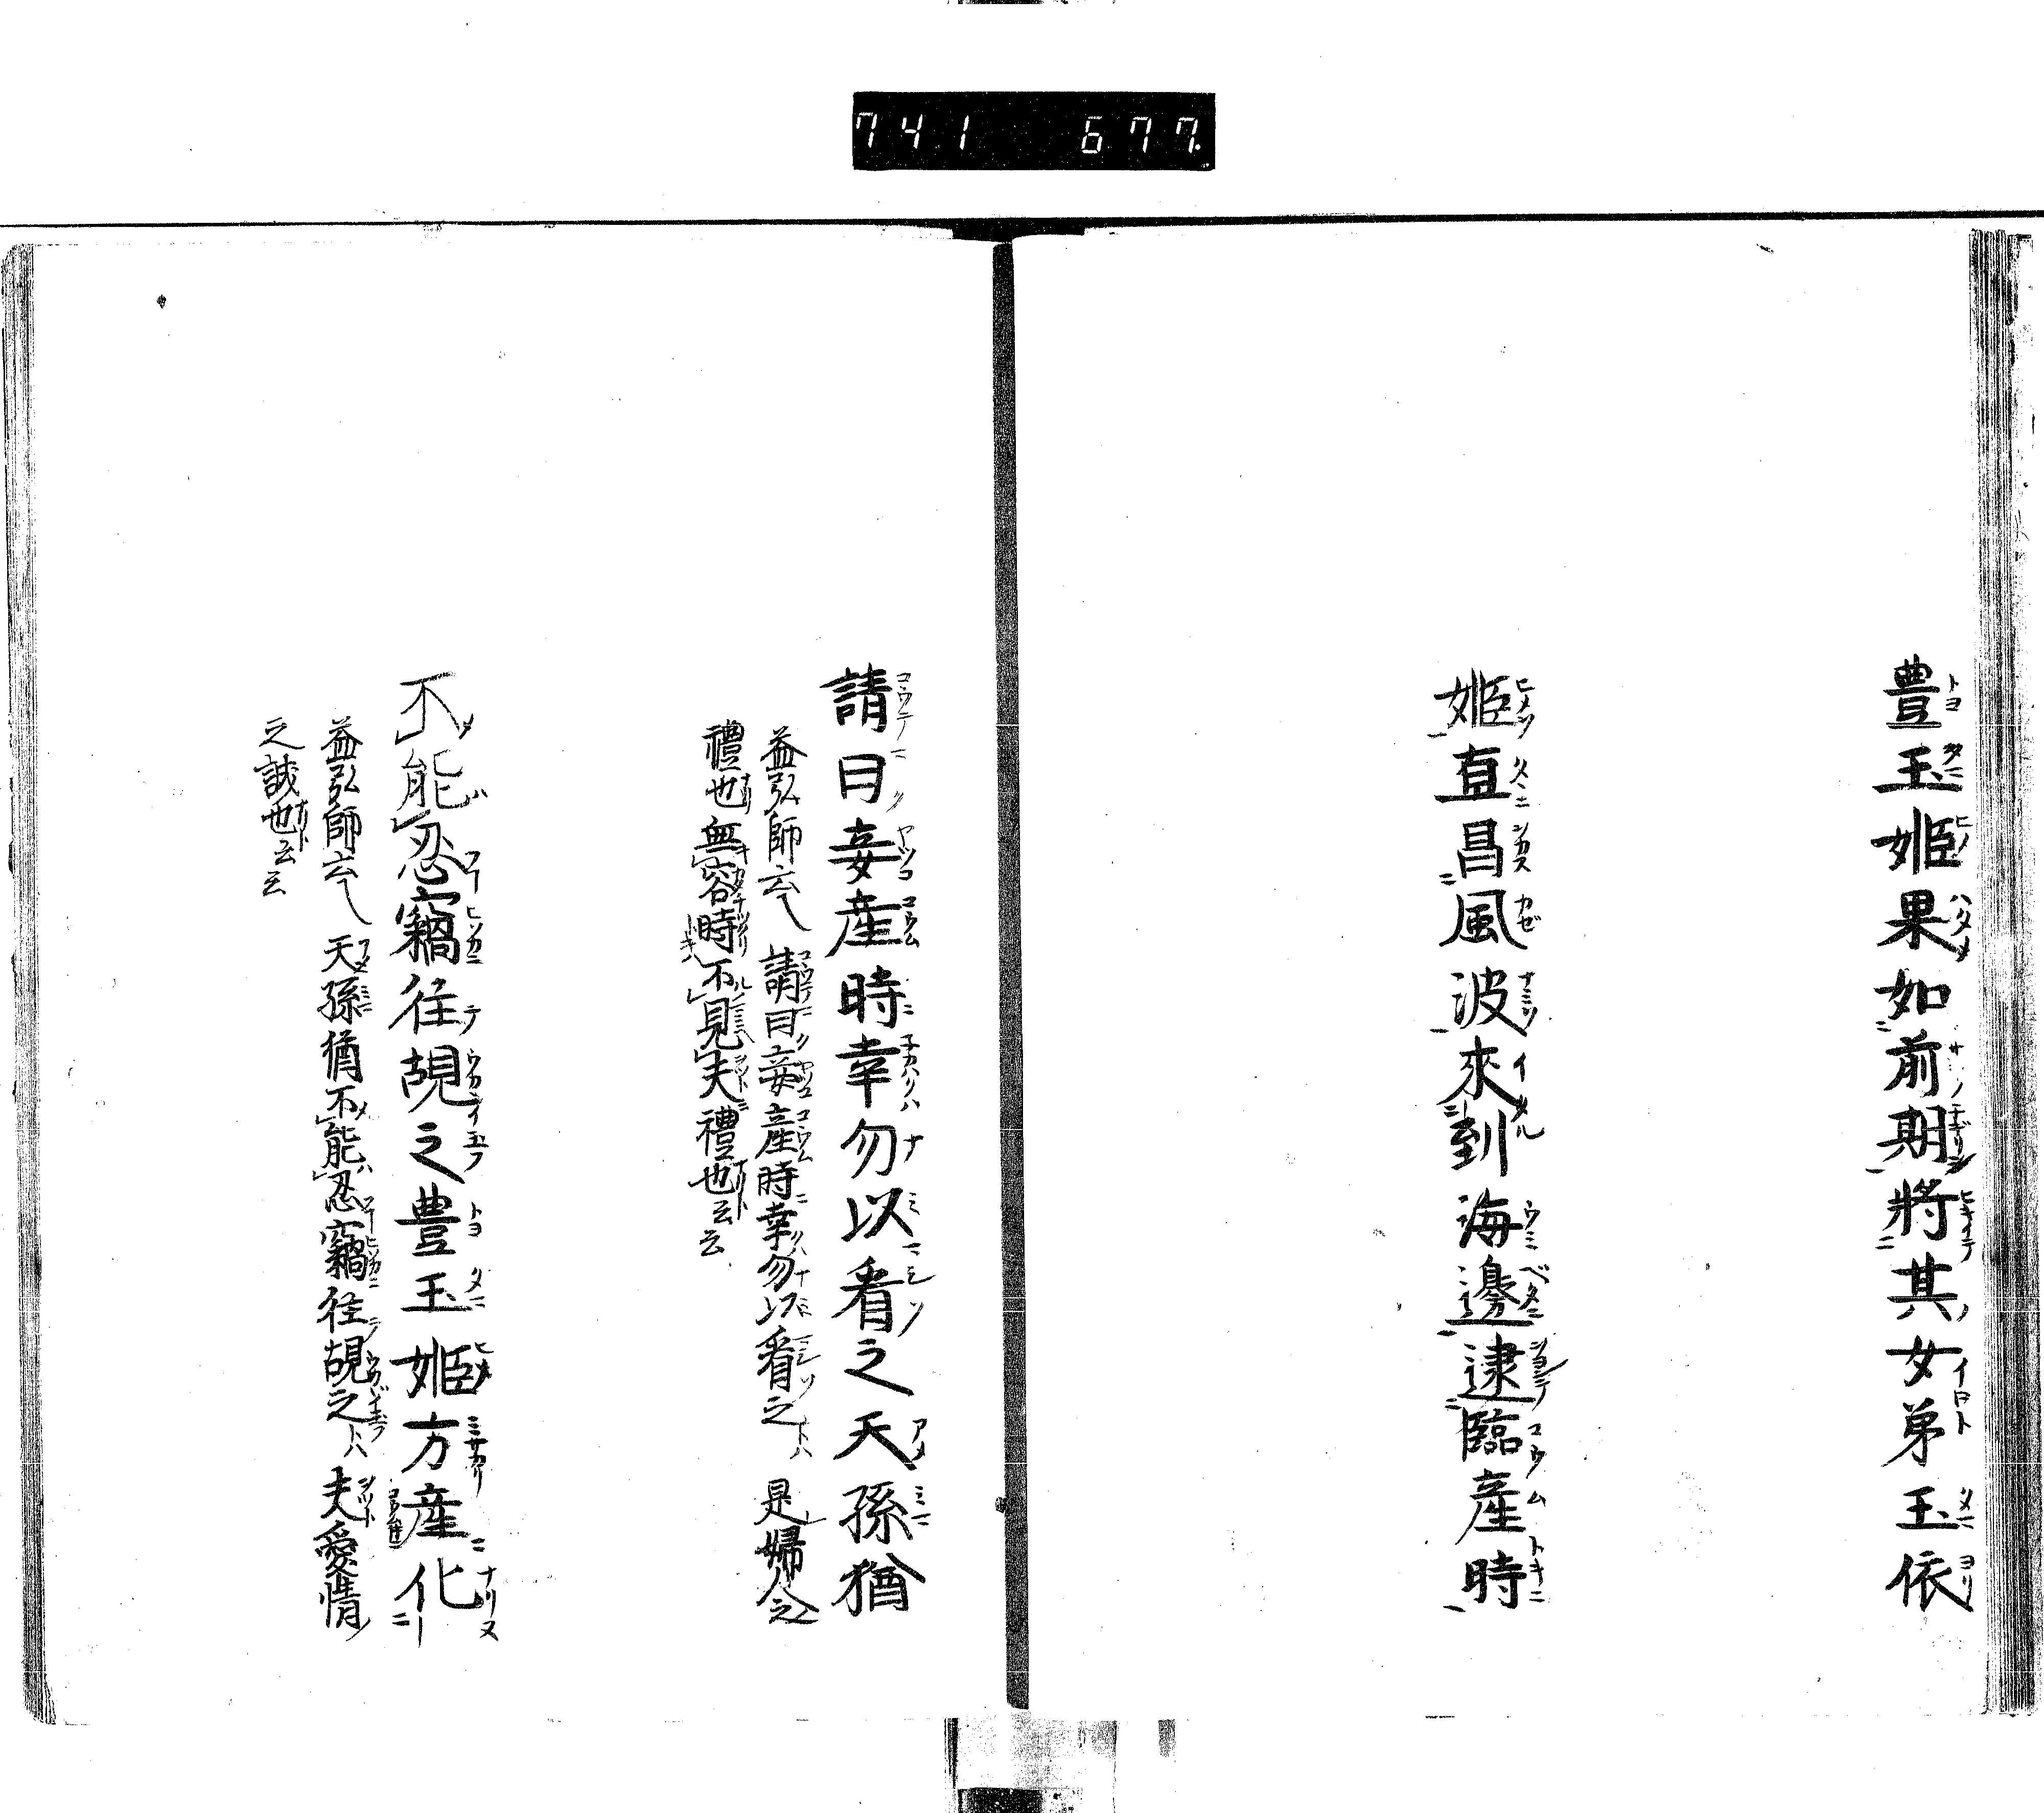 741 677
豊玉姬果如前期將其女弟玉依
姬直冒風波來到海邊逮臨產時
請曰妾產時幸勿以看之天孫猶
益弘師云 請曰妾產時幸勿以看之トハ 是婦人之
禮也無容時不見夫禮也云云
不能忍竊往覘之豊玉姬方產化
益弘師云 天孫猶不能忍竊往覘之トハ 夫愛情
之誠也云云